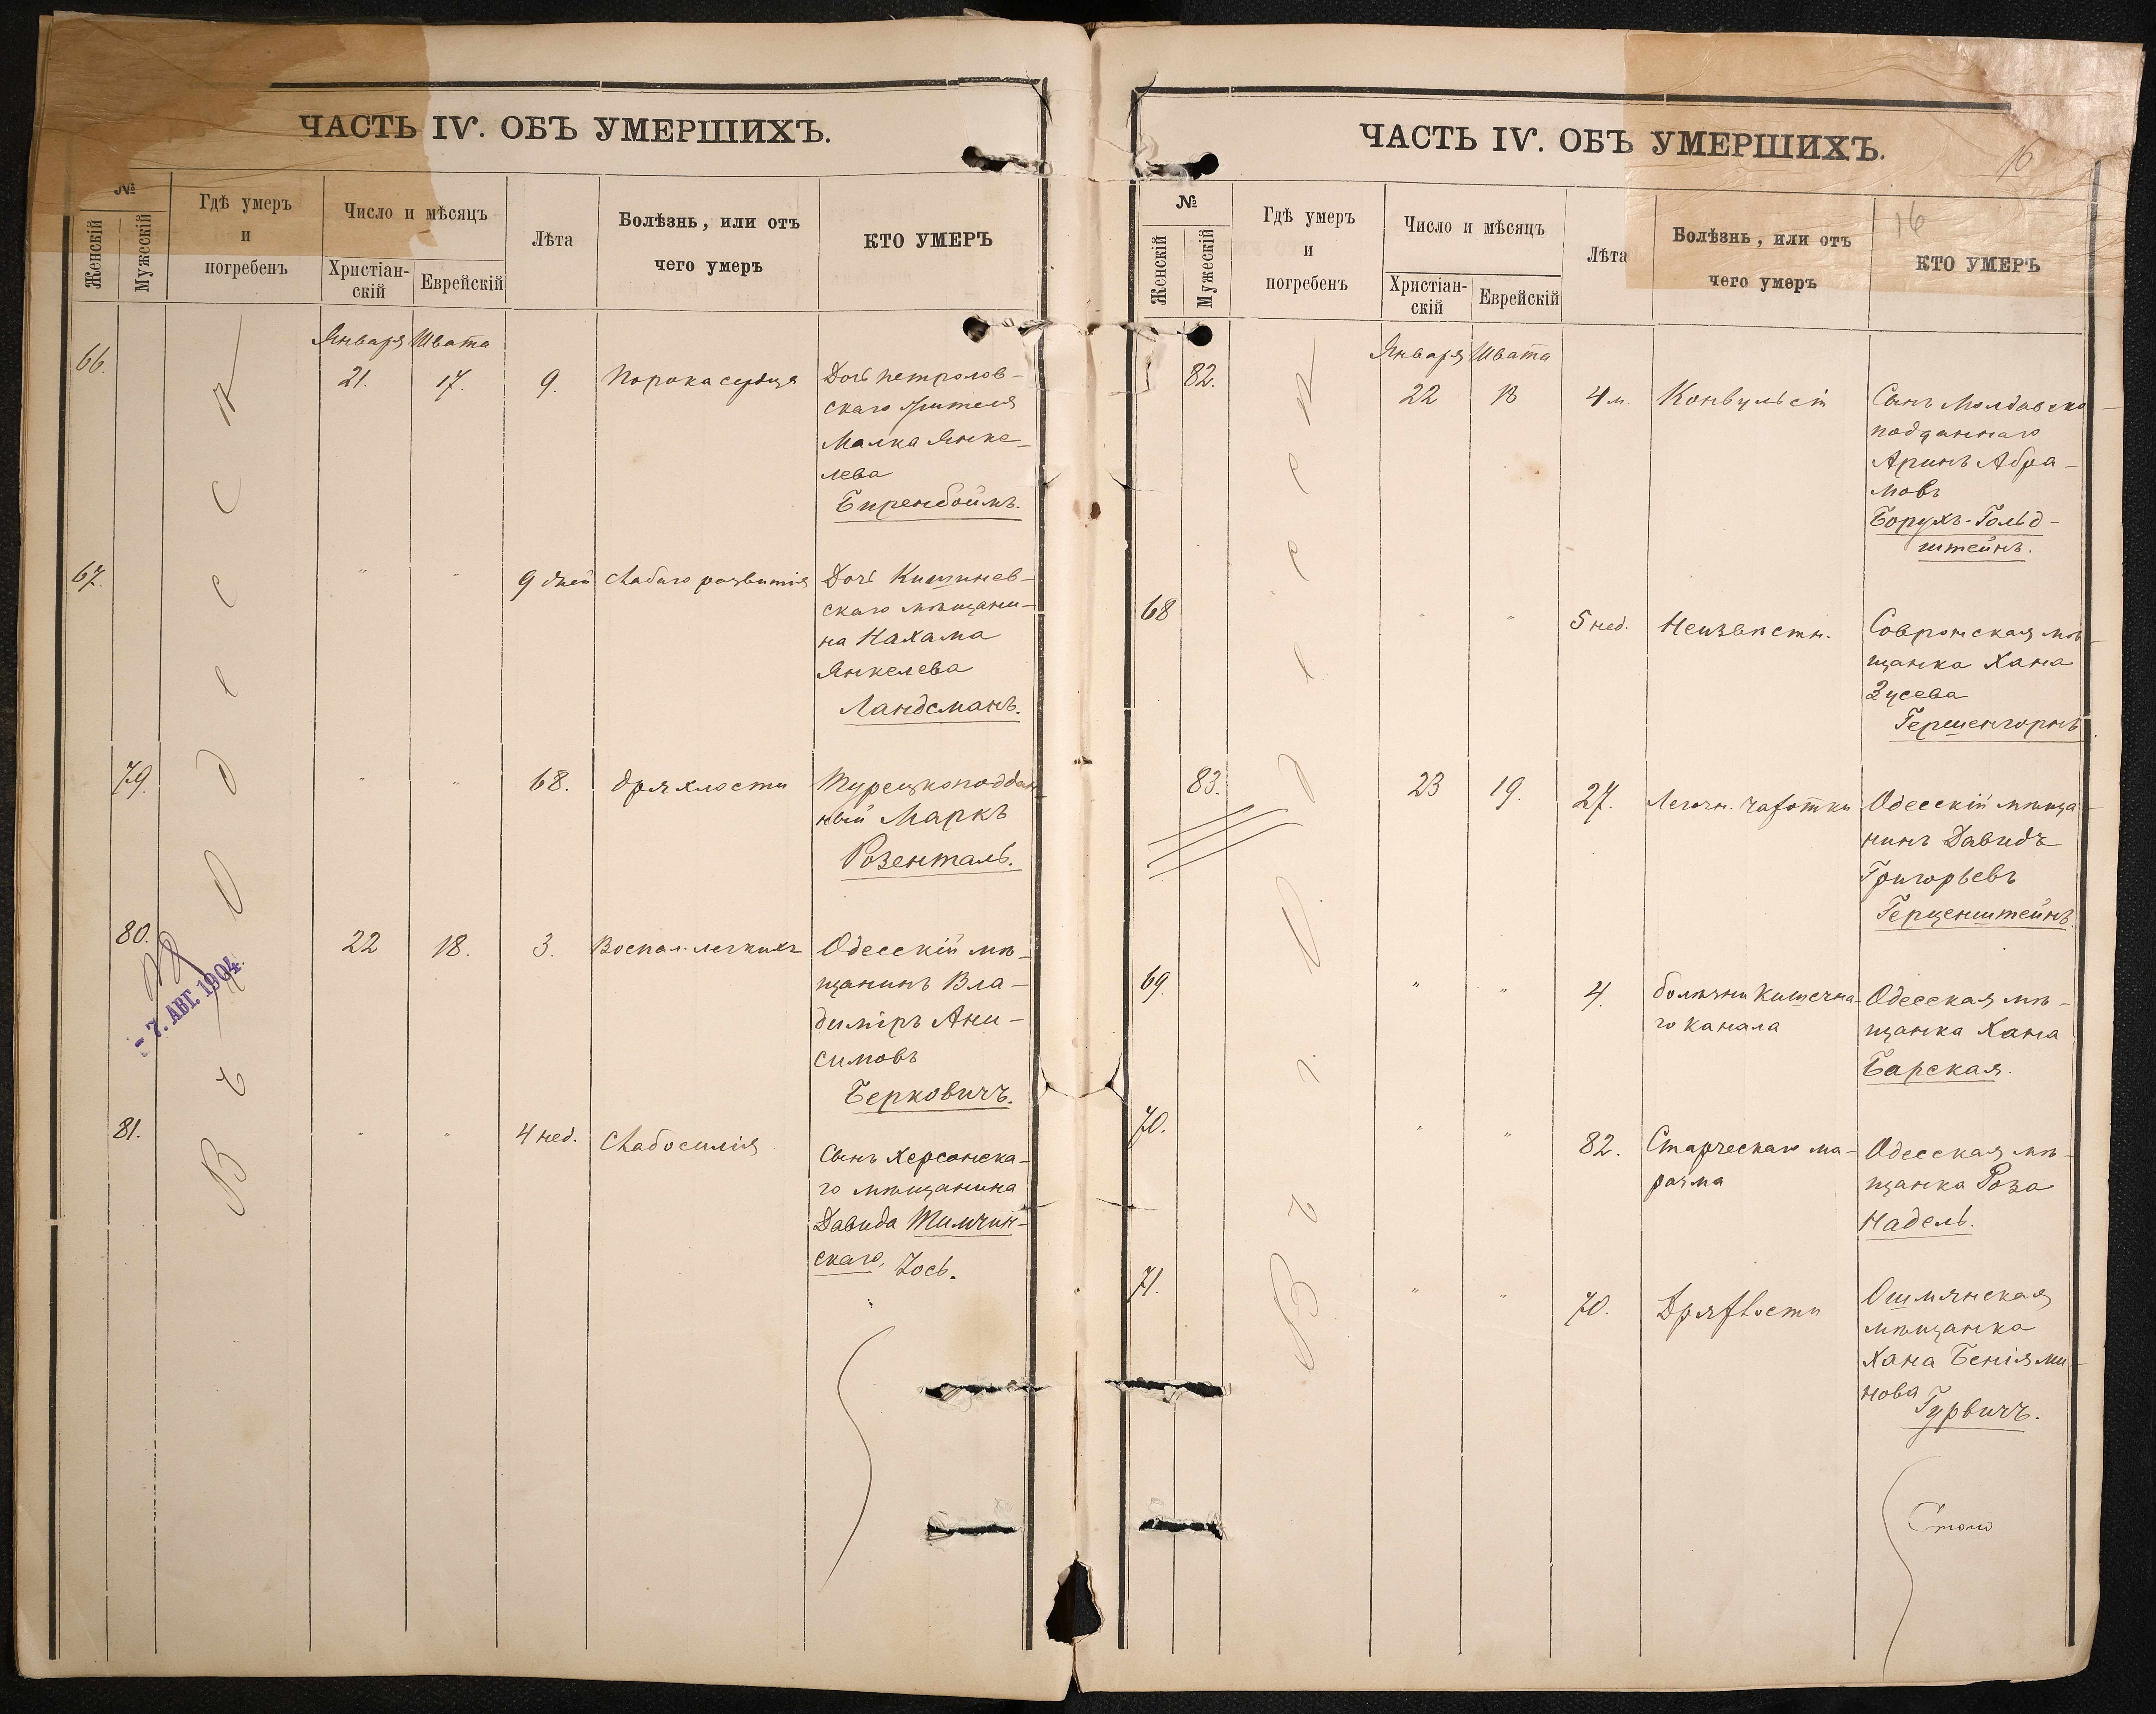 ЧАСТЬ IV. ОБЪ УМЕРШИХЪ.
№
Женскій
Мужескій
Гдѣ умеръ
и
погребенъ
Число и мѣсяцъ
Христіан-
скій
Еврейскій
Лѣта
Болѣзнь, или отъ
чего умеръ
КТО УМЕРЪ
Въ Одессѣ
Января Швата
66. 21. 17. 9. Порока сердца Дочь петролов-
скаго жителя
Малка Янке-
лева
Биренбоймъ.
67. " " 9 дней Слабаго развитія Дочь Кишинев-
скаго мѣщани-
на Нахама
Янкелева
Ландсманъ.
79. " " 68. дряхлости Турецкоподдан-
ный Маркъ
Розенталь.
80. 22 18. 3. Воспал. легкихъ Одесскій мѣ-
щанинъ Вла-
диміръ Ани-
симовъ
Берковичъ.
- 7. АВГ. 1904.
81. " " 4 нед. Слабосилія Сынъ Херсонска-
го мѣщанина
Давида Тимчин-
скаго, Іось.
ЧАСТЬ IV. ОБЪ УМЕРШИХЪ.
16
16
№
Женскій
Мужескій
Гдѣ умеръ
и
погребенъ
Число и мѣсяцъ
Христіан-
скій
Еврейскій
Лѣта
Болѣзнь, или отъ
чего умеръ
КТО УМЕРЪ
Въ г. Одессѣ
Января Швата
82. 22 18 4 м. Конвульсіи Сынъ Молдавско-
подданнаго
Аринъ Абра-
мовъ
Борухъ-Гольд-
штейнъ.
68 " " 5 нед. Неизвѣстн. Совранская мѣ-
щанка Хана
Зусева
Гершенгорнъ.
83. 23 19. 27. Легочн. чахотки Одесскій мѣща-
нинъ Давидъ
Григорьевъ
Герценштейнъ.
69. " " 4. болѣзни Кишечна- Одесская мѣ-
го канала щанка Хана
Барская.
70. " " 82. Старческаго ма- Одесская мѣ-
разма щанка Роза
Надель.
71. " " 70. Дряхлости Ошмянская
мѣщанка
Хана Беніями-
нова
Гурвичъ.